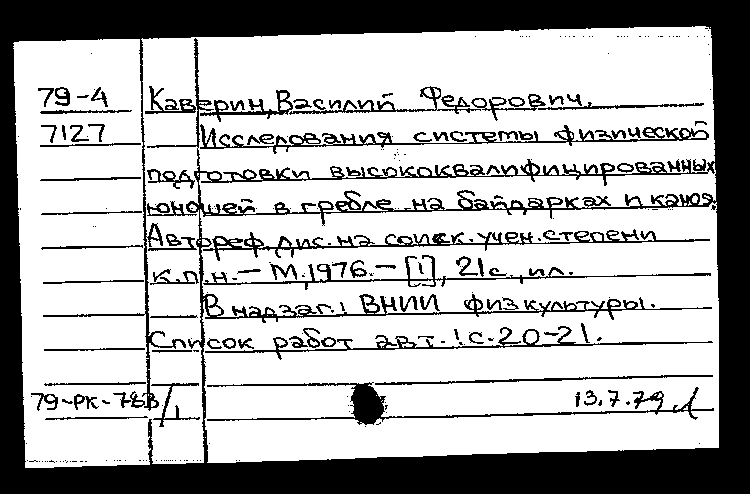 79-4 Каверин, Василий Федорович.
7127 Исследования системы физической
подготовки высококвалифицированных
юношей в гребле на байдарках и каноэ.
Автореф. дис. на соиск. учен. степени
к.п.н. – М., 1976. – [1], 21 с., ил.
В надзаг.: ВНИИ физкультуры.
Список работ авт.: с. 20-21.
79-РК- /1 13.7.79